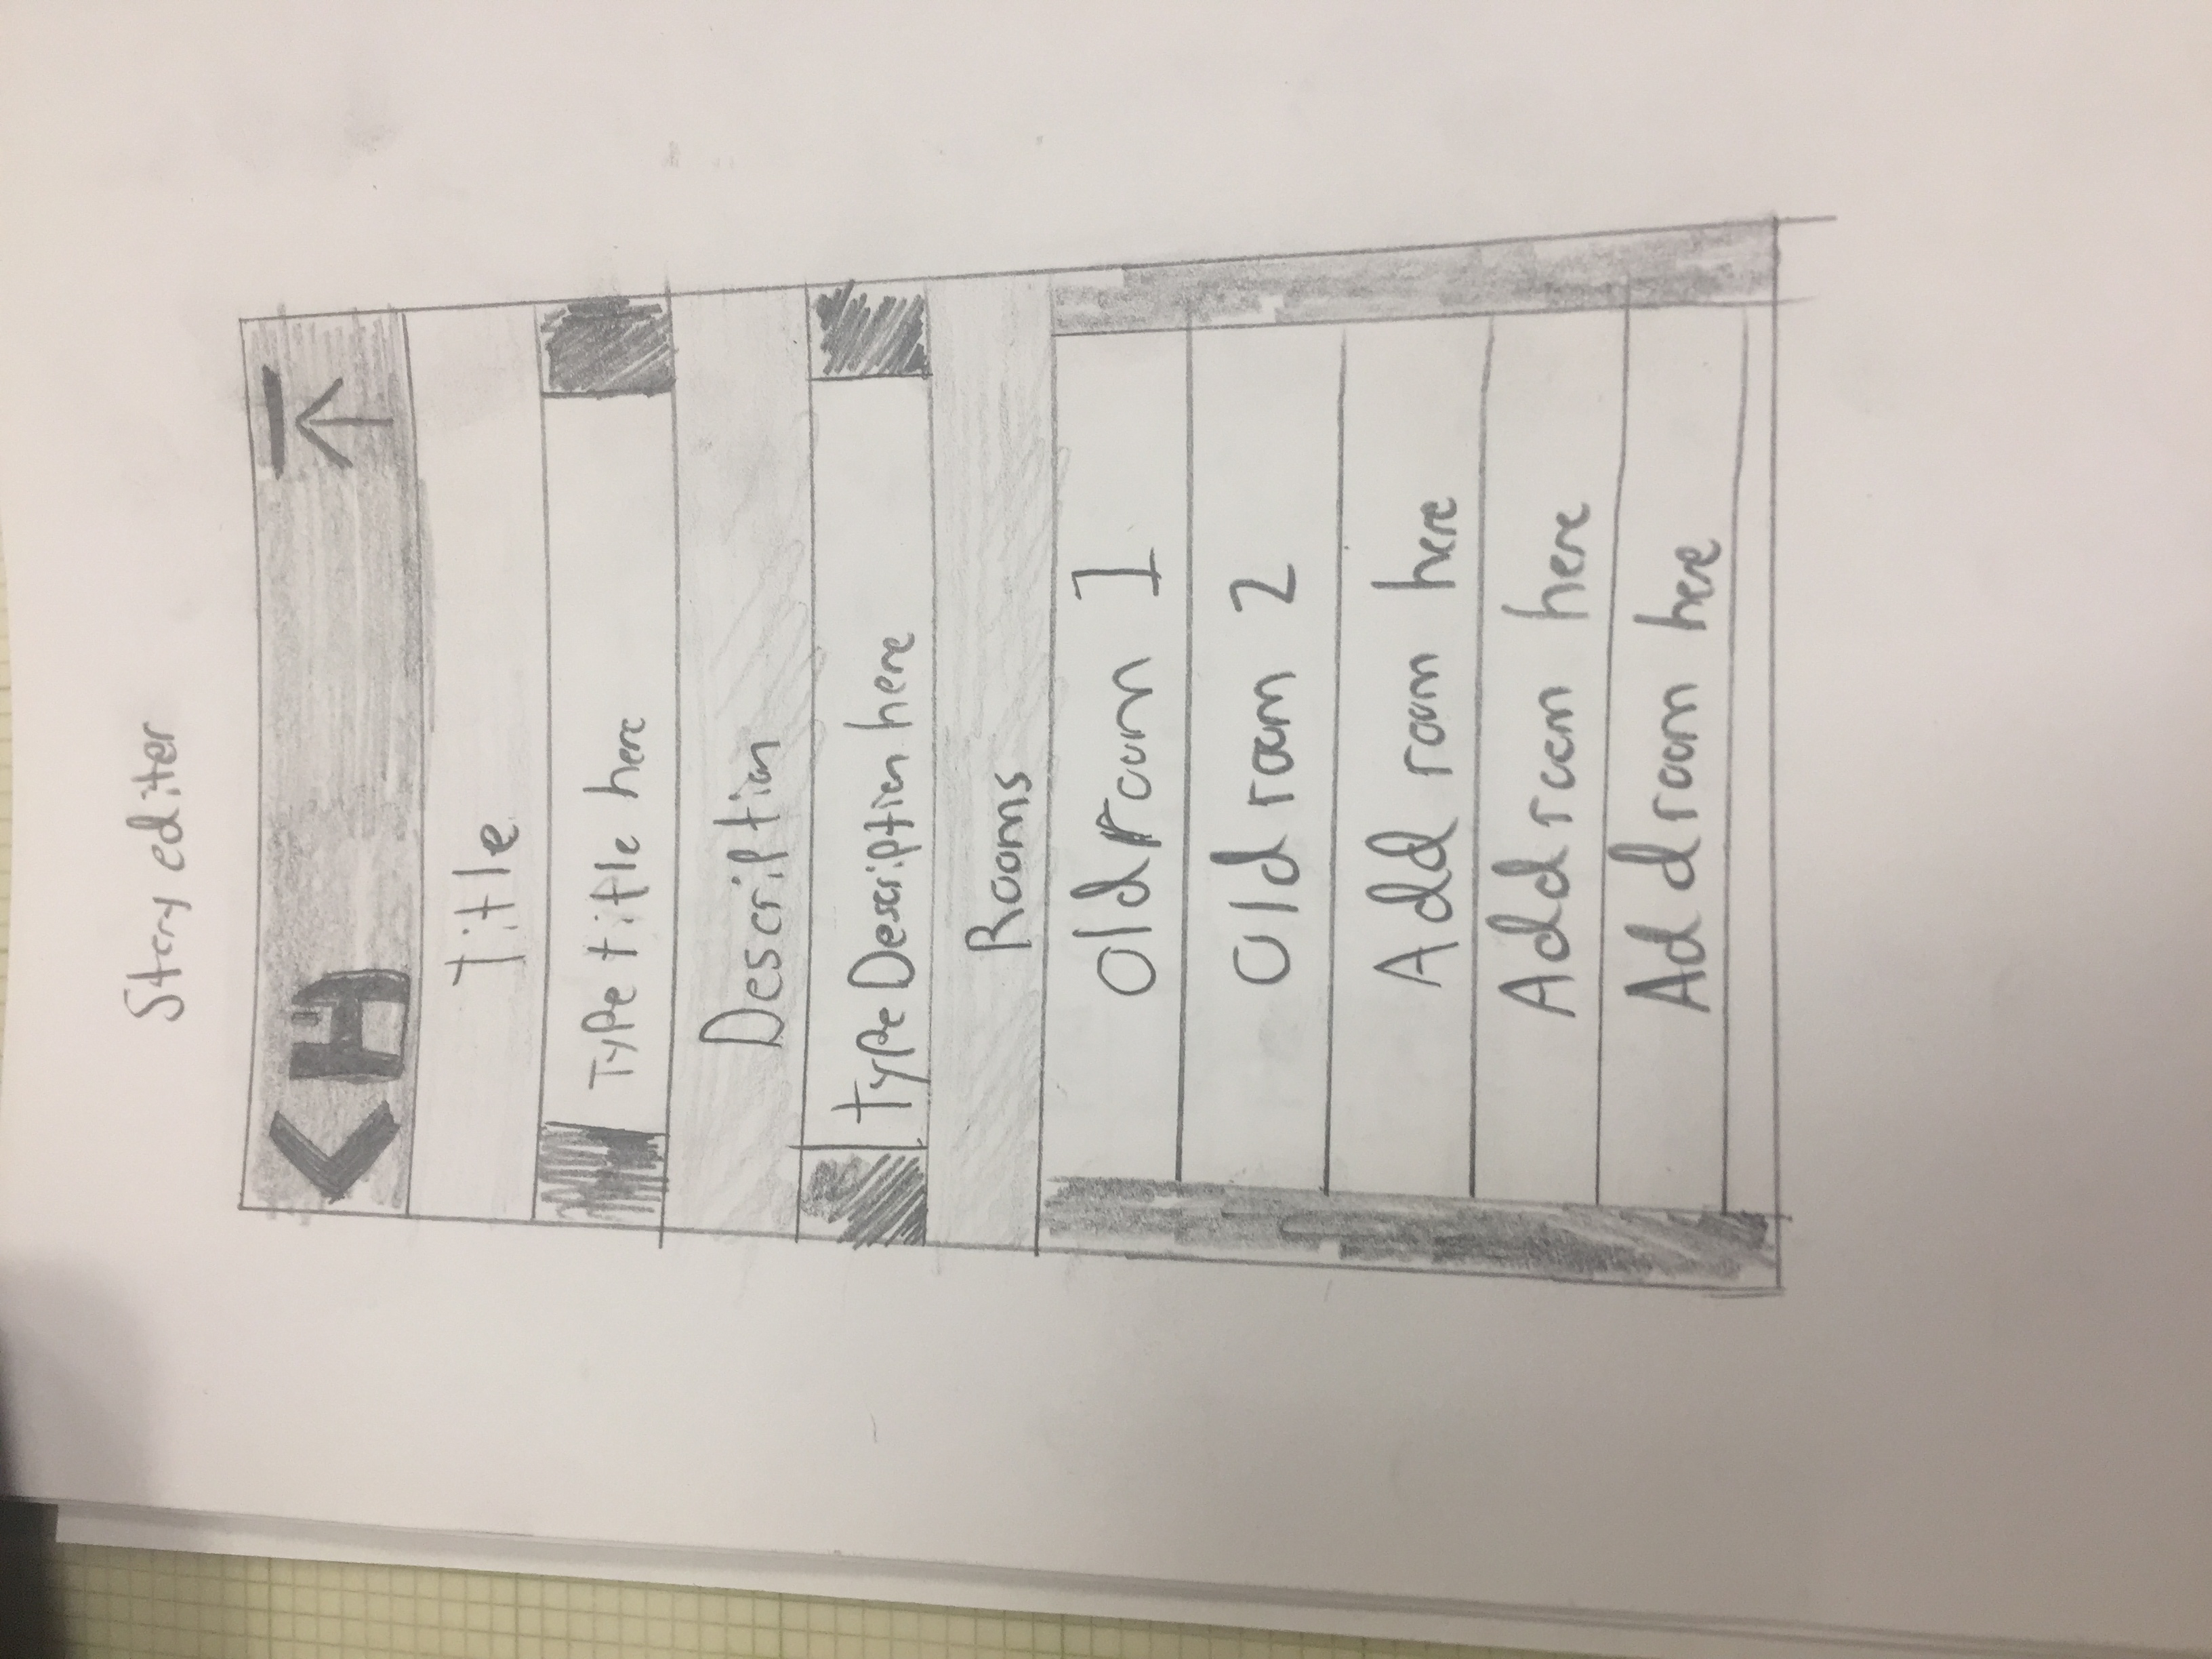 Story editer
Title
Type title here
Description
Type Description here
Rooms
Old room 1
Old room 2
Add room here
Add room here
Add room here